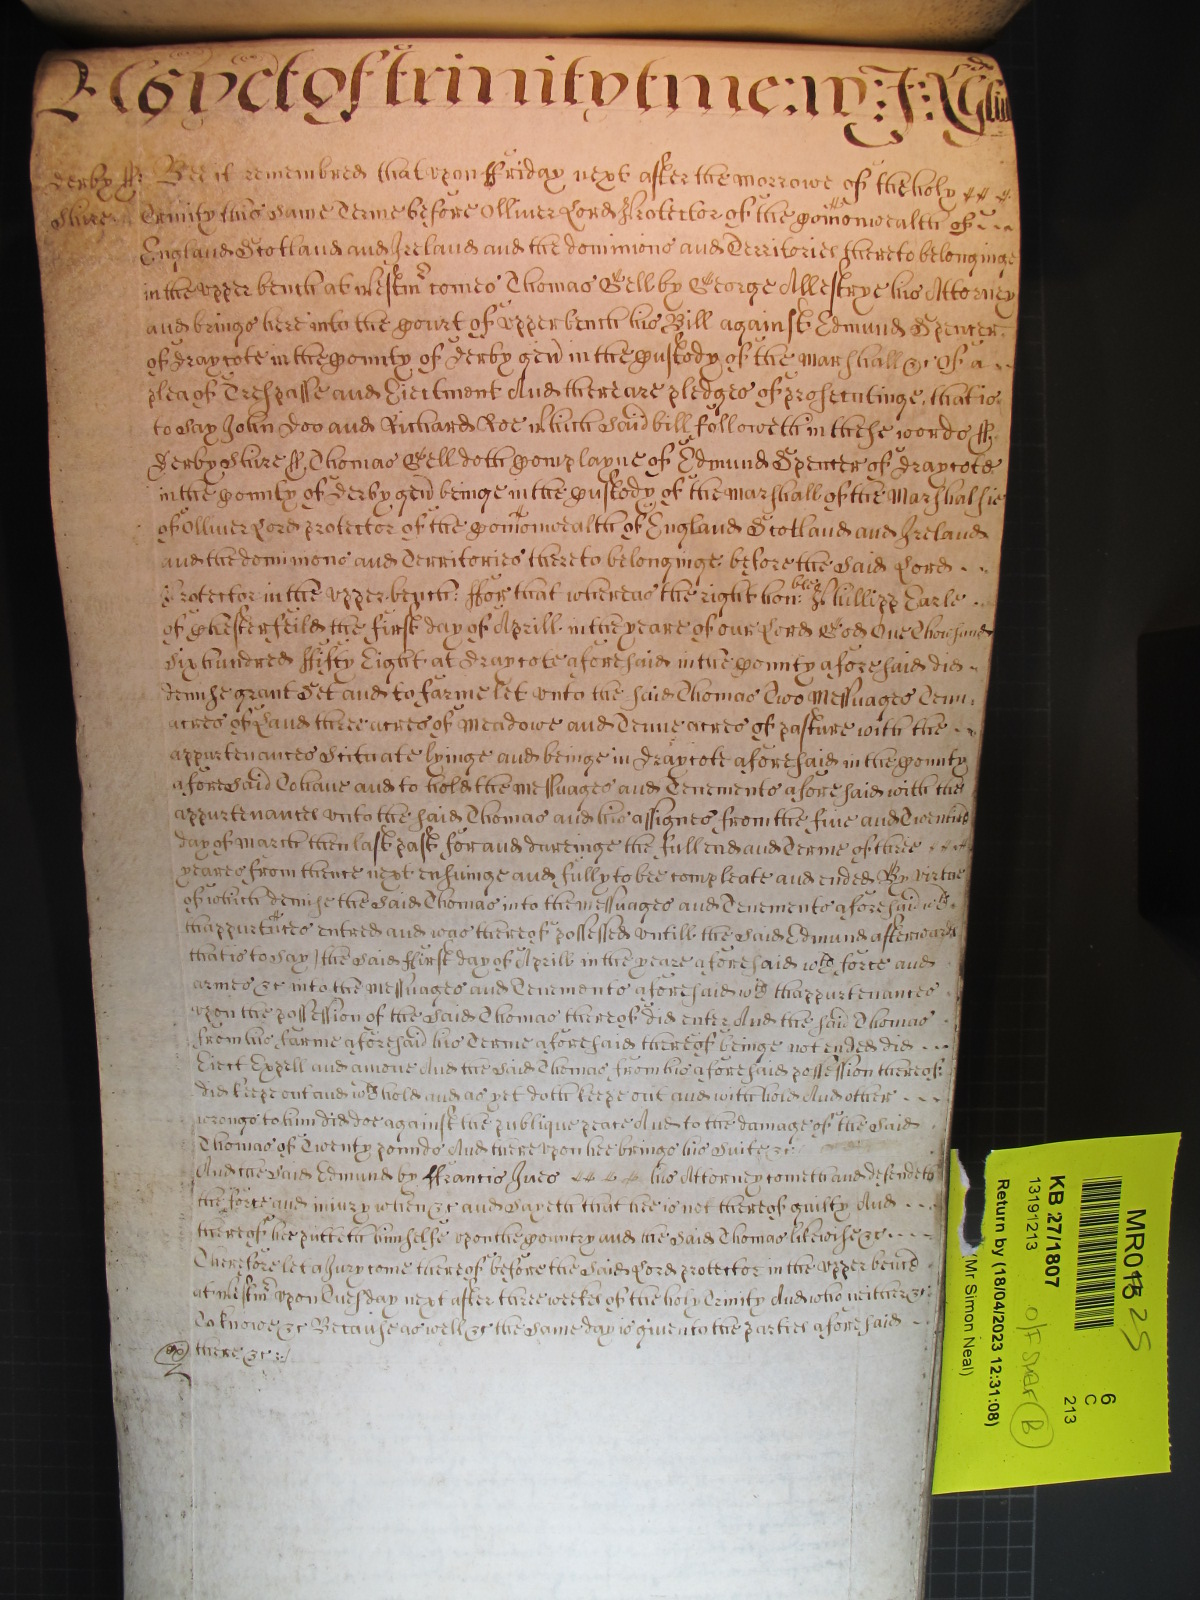 As yet of trinity terme: w: J: R
Derby ss: Bee it remembred that upon Friday next after the morrowe of the holy
Shire Trinity this same Terme before Olliver Lord Protector of the Comonwealth of
England Scotland and Ireland and the dominions and Territories thereto belonginge
in the upper bench at Westmr comes Thomas Gell by George Allestrye his Attorney
and brings here into the Court of upper bench his Bill against Edmund Spencer
of Draycote in the County of Derby gen in the Custody of the Marshall &c Of a
plea of Trespasse and Ejectment And there are pledges of prosecutinge, that is
to say John Doo and Richard Roe which said bill followeth in these words ss:
Derby Shire ss, Thomas Gell doth Complayne of Edmund Spencer of Draycote
in the County of Derby gen beinge in the Custody of the Marshall of the Marshalsie
of Olliver Lord protector of the Comonwealth of England Scotland and Ireland
and the dominions and Territories thereto belonginge before the said Lord
Protector in the upper bench: ffor that whereas the right hon:ble Phillipp Earle
of Chesterfeild the first day of Aprill in the yeare of our Lord God One Thousand
Six hundred ffifty Eight at Draycote aforesaid in the County aforesaid did
demise grant Set and to farme let unto the said Thomas Two Messuages Tenn
acres of Land three acres of Meadowe and Tenne acres of pasture with the
appurtenances Scituate lyinge and beinge in Draycote aforesaid in the County
aforesaid To have and to hold the Messuages and Tenements aforesaid with the
appurtenances unto the said Thomas and his assignes from the five and Twentith
day of March then last past for and dureinge the full end and Terme of three
yeares from thence next ensuinge and fully to bee compleate and ended By virtue
of which demise the said Thomas into the messuages and Tenements aforesaid wth
thappurtences entred and was thereof possessed untill the said Edmund afterwards
that is to say the said ffirst day of Aprill in the yeare aforesaid wth force and
armes &c into the Messuages and Tenements aforesaid wth thappurtenances
upon the possession of the said Thomas thereof did enter And the said Thomas
from his farme aforesaid his Terme aforesaid thereof beinge not ended did
Eject Expell and amove And the said Thomas from his aforesaid possession thereof
did keepe out and wthhold and as yet doth keepe out and withhold And other
wrongs to him did doe against the publique peace And to the damage of the said
Thomas of Twenty pounds And thereupon hee brings his Suite &c
And the said Edmund by ffrancis Ives his Attorney cometh and defendeth
the force and injury when &c and sayeth that hee is not thereof guilty And
thereof hee putteth himselfe upon the Country and the said Thomas likewise &c
Therefore let a Jury come thereof before the said Lord protector in the upper bench
at Westmr upon Tuesday next after three weekes of the holy Trinity And who neither &c
To knowe &c Because as well &c the same day is given to the parties aforesaid
there &c :)
MR018 25
6
C
213
KB 27/1807
13191213
Return by (18/04/2023 12:31:08)
(Mr Simon Neal)
B